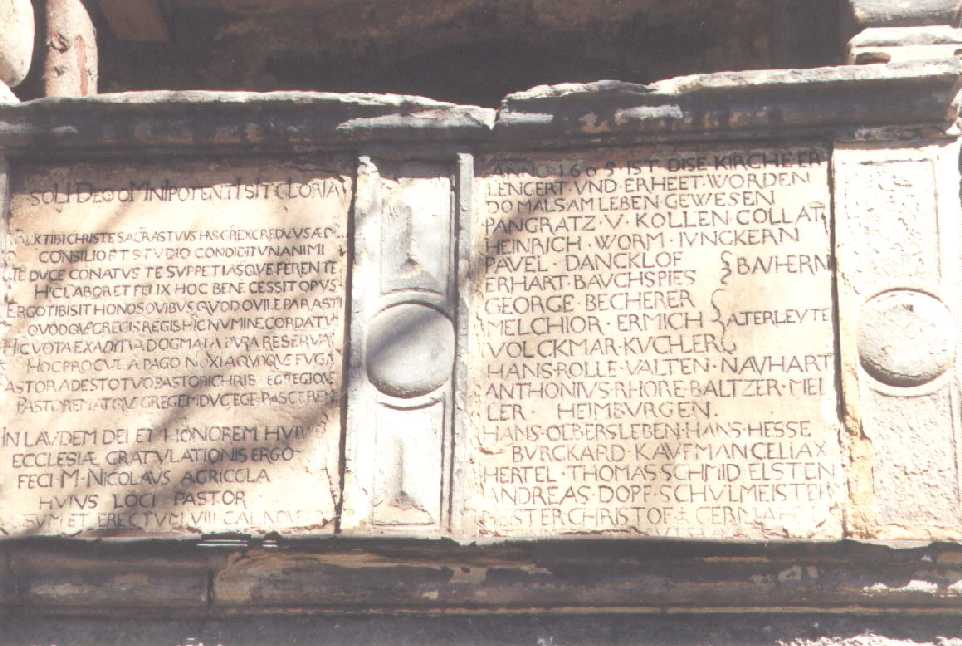 SOLI DEO OMNIPOTENTI SIT GLORIA
CHRISTE
CONSILIO ET STUDIO CONDIDIT UNANIMI
TE DUCE CONATUS TE SUPPETIASQUE FERENTE
HIC LABOR ET FELIX HOC BENE CESSIT OPUS
ERGO TIBI SIT HONOS OVIBUS QUOD OVILE PARASTI
GREGIS REGIS HIC NUMINE
HIC VOTA EXAUDI DOGMATA PURA RESERVA
HOC PROCUL A PAGO FUGA
PASTOR ADESTO TUO PASTORI CHRISTE GREGIQUE
GREGEM DUC EGE PASCE
IN LAUDEM DEI ET HONOREM HUIUS
ECCLESIÆ GRATULATIONIS ERGO
FECI M·NICOLAUS AGRICOLA
HUIUS LOCI PASTOR
ERECTUM VIII
ANNO·1605·IST DISE KIRCHE ER
LENGERT·VND ERHEET·WORDEN
DOMALS AM LEBEN GEWESEN
PANGRATZ·V·KOLLEN COLLAT
HEINRICH·WORM·IVNCKERN
PAVEL·DANCKLOF
ERHART·BAVCHSPIES
BAVHERN
GEORGE·BECHERER
MELCHIOR·ERMICH
ALTERLEVTE
VOLCKMAR·KVCHLER
HANS·ROLLE·VALTEN·NAVHART
ANTHONIVS·RHORE·BALTZER·MEI
LER·HEIMBURGEN.
HANS·OLBERSLEBEN·HANS·HESSE
BVRCKARD·KAVFMAN
HERTEL·THOMAS SCHMID ELSTEN
ANDREAS·DOPF·SCHVLMEISTER
CHRISTOF